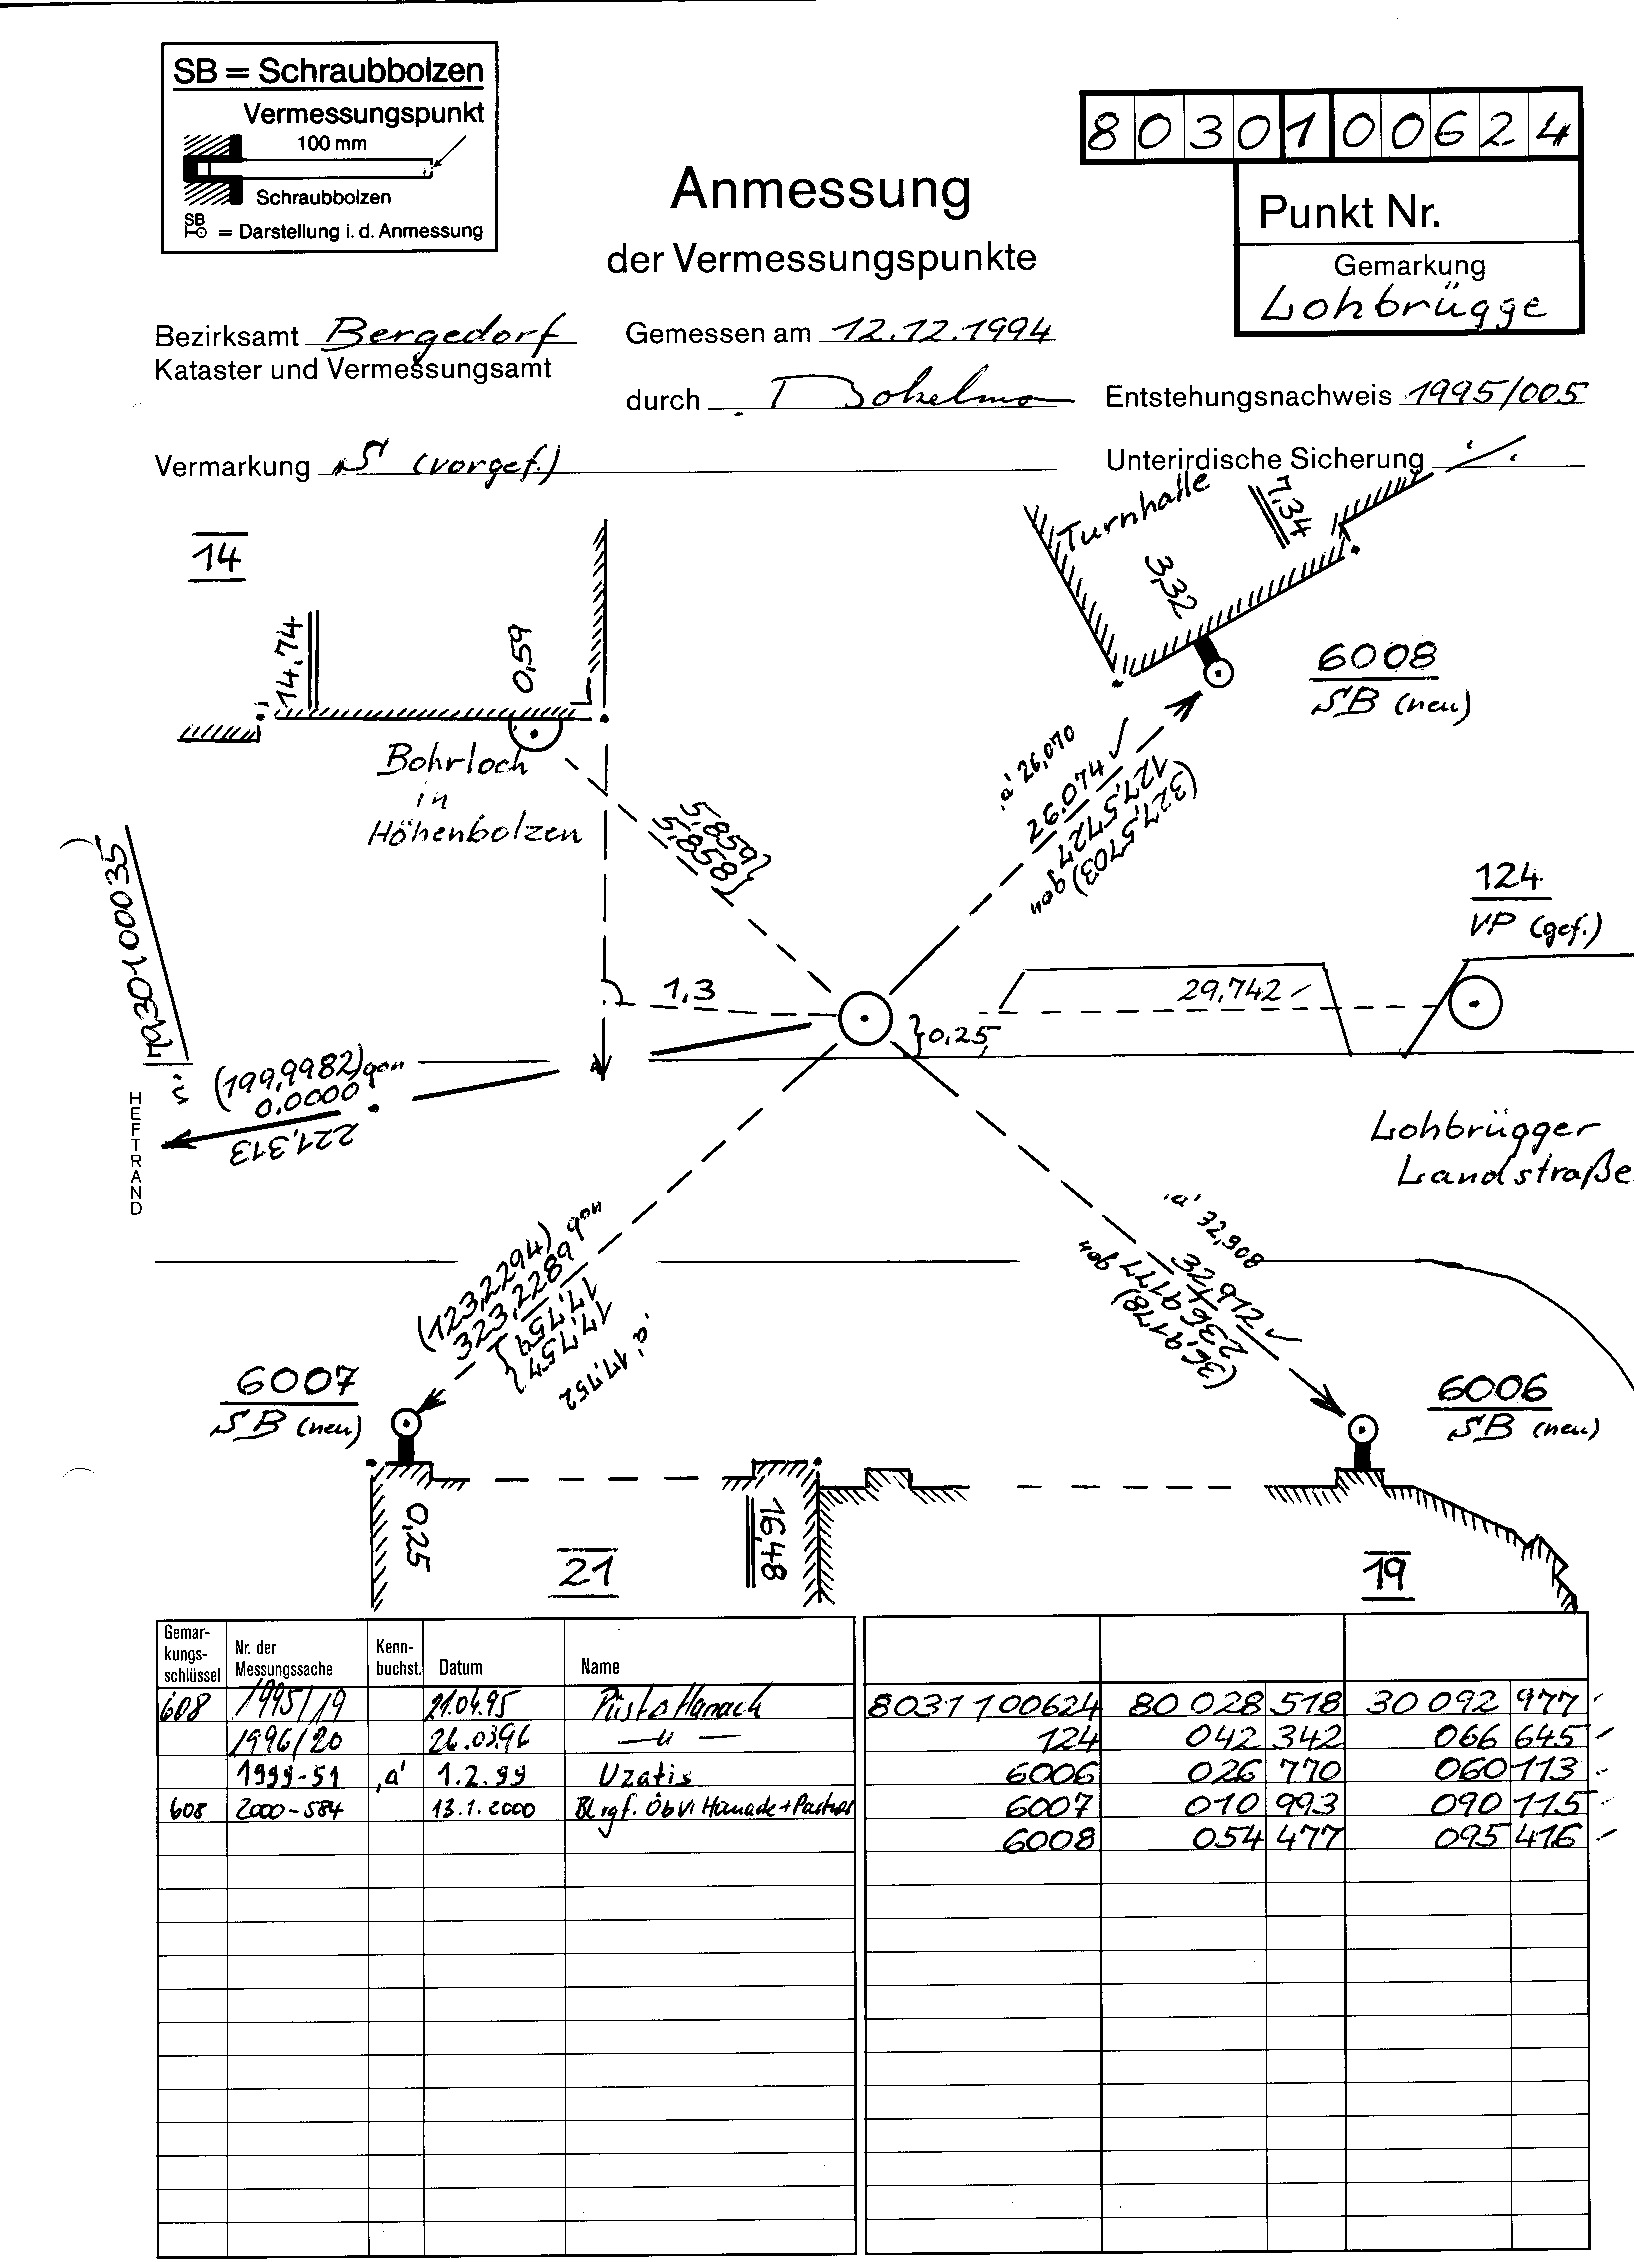 SB = Schraubbolzen
Vermessungspunkt
100 mm
Schraubbolzen
SB
= Darstellung i. d. Anmessung
Anmessung
der Vermessungspunkte
8030100624
Punkt Nr.
Gemarkung
Lohbrügge
Bezirksamt Bergedorf
Kataster und Vermessungsamt
Gemessen am 12.12.1994
durch
Entstehungsnachweis 1995/005
Vermarkung S (vorgef.)
Unterirdische Sicherung ./.
14
14,74
0,59
Bohrloch
in
Höhenbolzen
Turnhalle
7,34
3,32
6008
SB (neu)
'a' 26,070
26,074 ✓
127,5727
(327,5703) gon
5,859
5,858
124
VP (gef.)
1,3
29,742
0,25
(199,9982) gon
0,0000
221,313
HEFTRAND
Lohbrügger
Landstraße
(123,2294) gon
323,2289
17,754
17,757
'a' 17,752
'a' 32,908
32,912 ✓
236,9177 gon
(36,9178)
6007
SB (neu)
6006
SB (neu)
0,25
16,48
21
19
Gemar-
kungs-
schlüssel
Nr. der
Messungssache
Kenn-
buchst.
Datum
Name
608 1995/19 21.04.95 8031100624 80 028 518 30 092 977
1996/20 26.03.96 — " — 124 042 342 066 645
1999-51 'a' 1.2.99 Uzatis 6006 026 770 060 113
608 2000-584 13.1.2000 ÖbVI 6007 010 993 090 115
6008 054 477 095 416